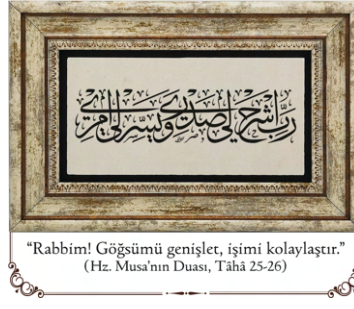 رَبِّ اشْرَحْ لِي صَدْرِي وَيَسِّرْ لِي أَمْرِي
“Rabbim! Göğsümü genişlet, işimi kolaylaştır.”
(Hz. Musa’nın Duası, Tâhâ 25-26)